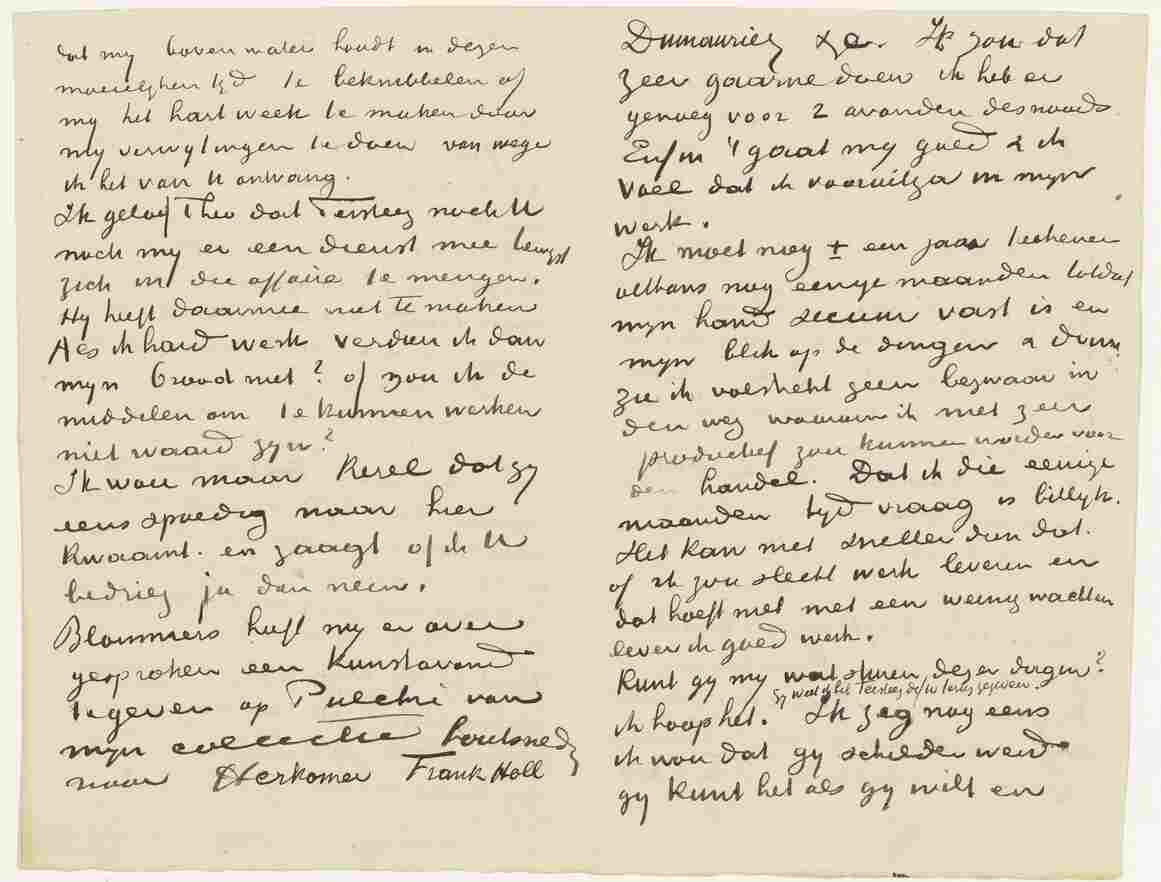 dat my boven water houdt in dezen
moeielyken tyd te beknibbelen of
my het hart week te maken door
my verwytingen te doen van wege
ik het van U ontvang.
Ik geloof Theo dat Tersteeg noch U
noch my er een dienst mee bewyst
zich in die affaire te mengen.
Hy heeft daarmee niet te maken
Als ik hard werk verdien ik dan
myn brood niet? of zou ik de
middelen om te kunnen werken
niet waard zyn?
Ik wou maar kerel dat gy
eens spoedig naar hier
kwaamt. en zaagt of ik U
bedrieg ja dan neen.
Blommers heeft my er over
gesproken een kunstavond
te geven op Pulchri van
myn collectie houtsneden
naar Herkomer Frank Holl
Dumaurier &c. Ik zou dat
zeer gaarne doen ik heb er
genoeg voor 2 avonden desnoods
Enfin 't gaat my goed & ik
voel dat ik vooruitga in myn
werk.
Ik moet nog ± een jaar teekenen
althans nog eenige maanden totdat
myn hand secuur vast is en
myn blik op de dingen & dan
zie ik volstrekt geen bezwaar in
den weg waarom ik niet zeer
productief zou kunnen worden voor
den handel. Dat ik die eenige
maanden tyd vraag is billyk.
Het kan niet sneller dan dat.
of ik zou slecht werk leveren en
dat hoeft niet met een weinig wachten
lever ik goed werk.
Kunt gy my wat sturen dezer dagen?
Gy weet ik heb Tersteeg de f10 terug gegeven.
ik hoop het. Ik zeg nog eens
ik wou dat gy schilder werd
gy kunt het als gy wilt en